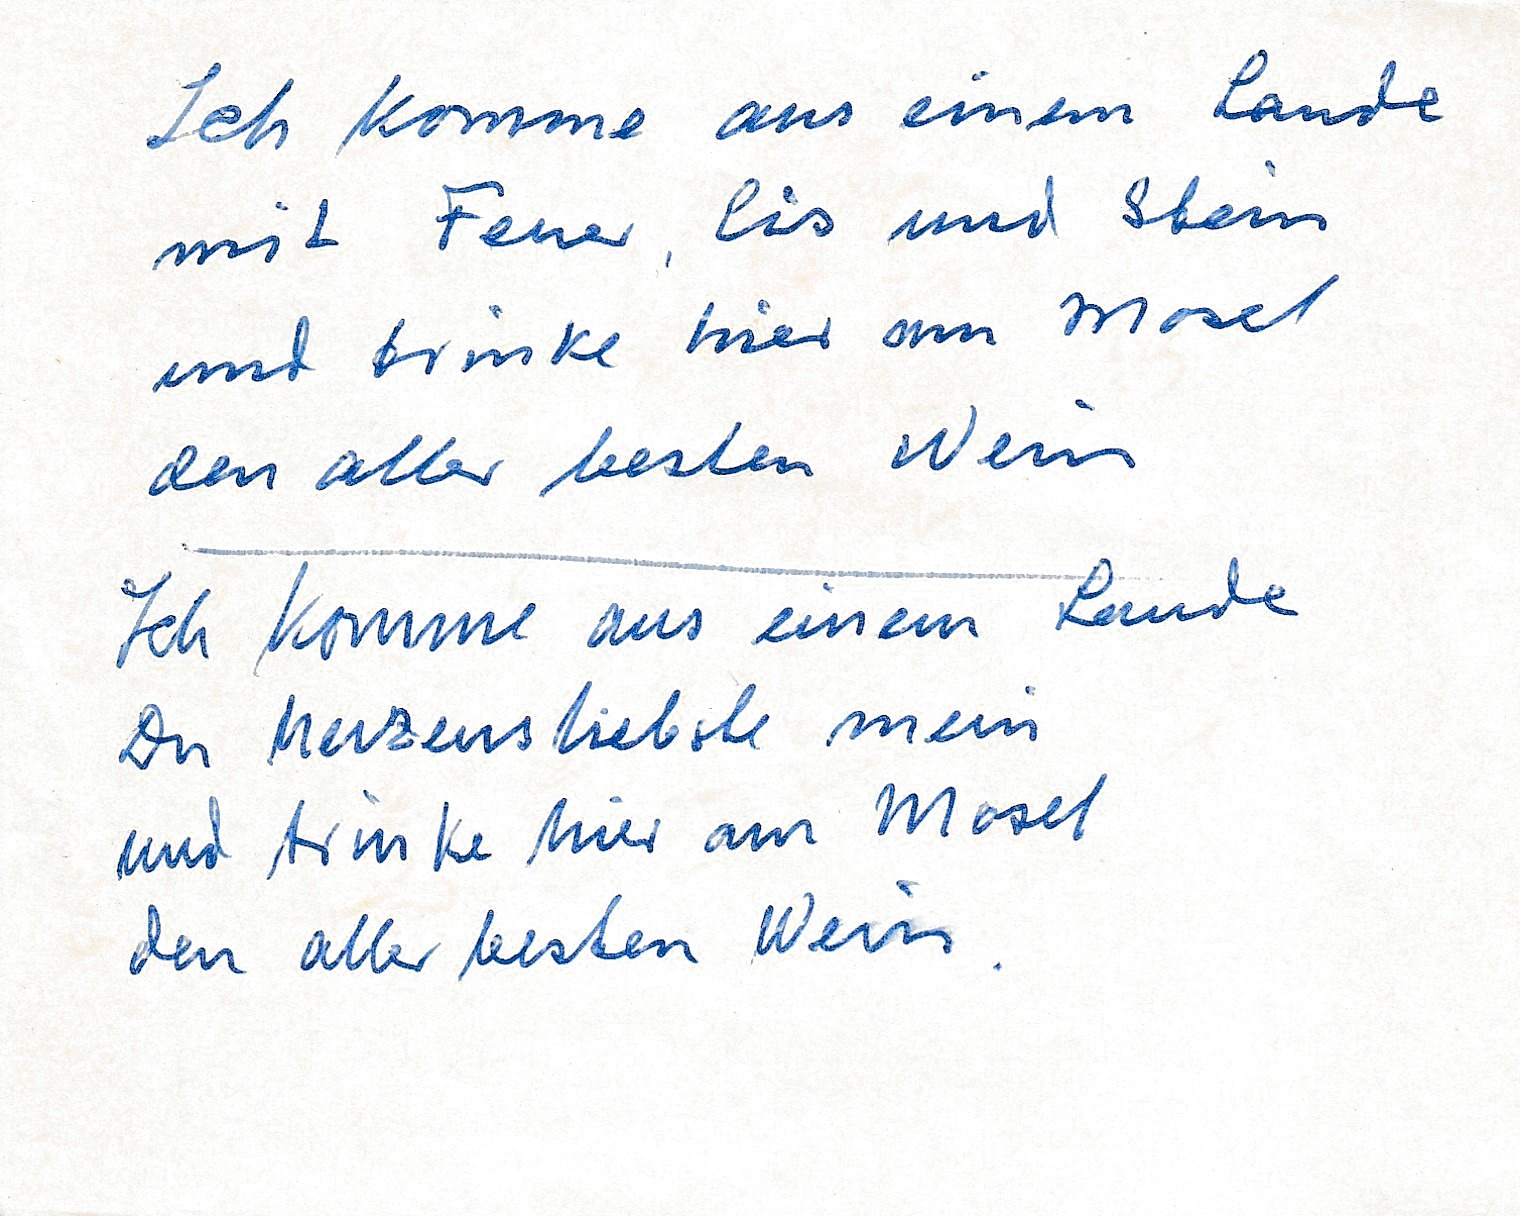 Ich komme aus einem Lande
mit Feuer, Eis und Stein
und trinke hier am Mosel
den aller besten Wein
Ich komme aus einem Lande
Du herzensliebste mein
und trinke hier am Mosel
den aller besten Wein.